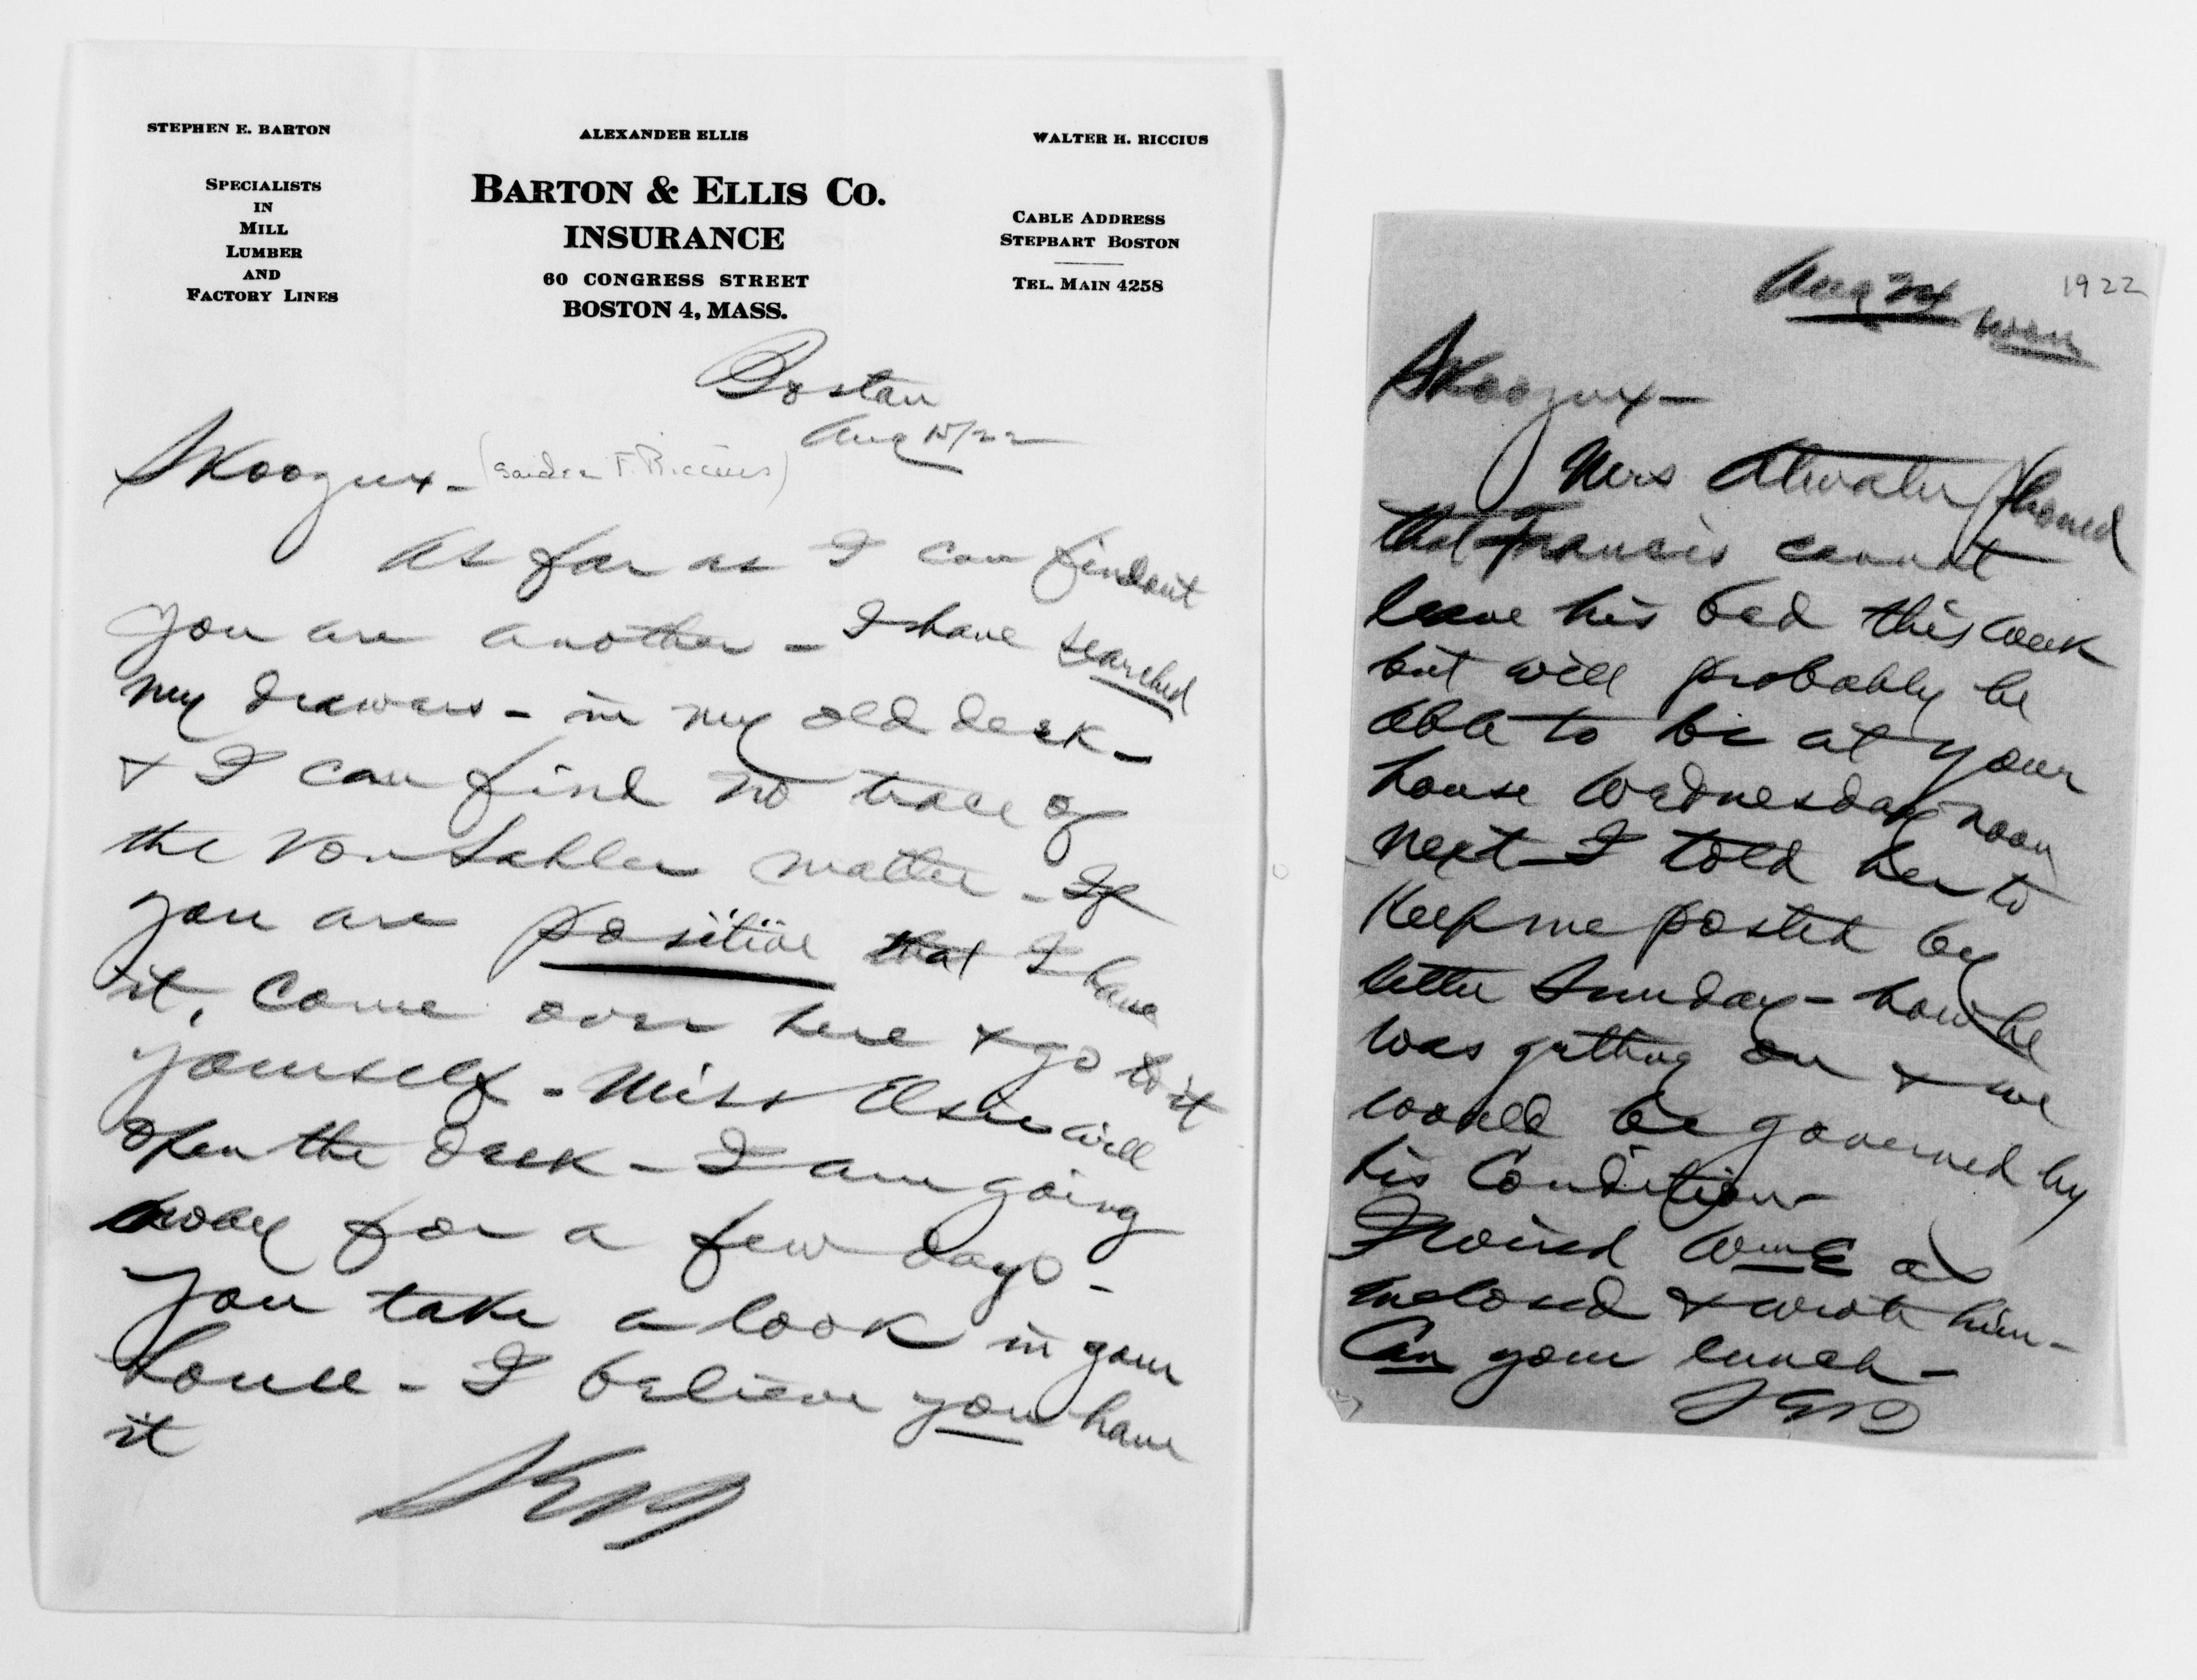 STEPHEN E. BARTON
ALEXANDER ELLIS
WALTER H. RICCIUS
SPECIALISTS
IN
MILL
LUMBER
AND
FACTORY LINES
BARTON & ELLIS CO.
INSURANCE
60 CONGRESS STREET
BOSTON 4, MASS.
CABLE ADDRESS
STEPBART BOSTON
TEL. MAIN 4258
Boston
Aug 15/22
Skoogux - (Saidee F. Riccius)
As far as I can find out
you are another - I have searched
my drawers - in my old desk -
& I can find no trace of
the Von Sahler matter - If
you are positive that I have
it, come over here & go to it
yourself - Miss Elsie will
open the desk - I am going
away for a few days -
you take a look in your
house - I believe you have
it
SEB
Aug 24 1922
noon
Skoogux -
Mrs Atwater phoned
that Francis cannot
leave his bed this week
but will probably be
able to be at your
house Wednesday noon
next I told her to
keep me posted by
letter Sunday - how he
was getting on & we
would be governed by
his condition
I wired Wm E as
enclosed & wrote him -
Can your lunch -
SEB